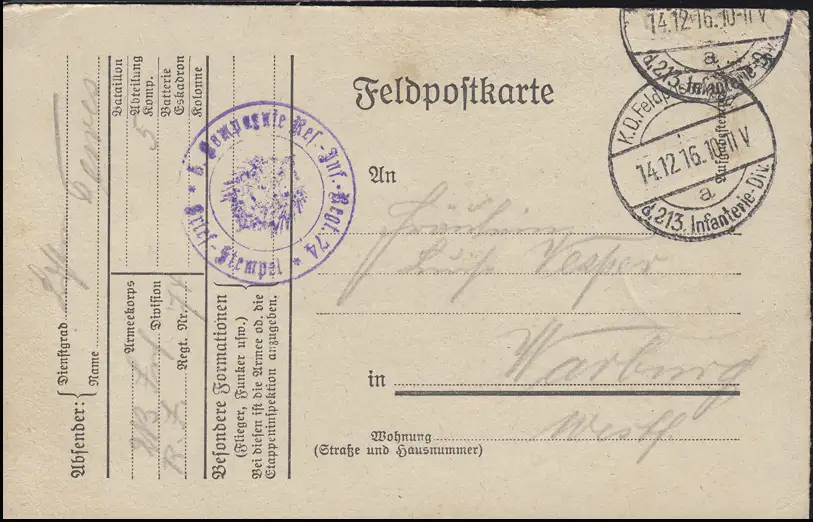 Feldpostkarte
An
Fräulein
Vesper
in Warburg
Westf
Wohnung
(Straße und Hausnummer)
14.12.16.10-11 V
a
d. 213. Infanterie-Div.
K.D. Feldpost
14.12.16.10-11 V
a
d. 213. Infanterie-Div.
5. Kompagnie Res.-Inf.-Regt. 74
* Brief-Stempel *
Absender:
Dienstgrad
Name
Bataillon
Abteilung
Komp. 5
Batterie
Eskadron
Kolonne
Armeekorps
213 Inf Division
R. I. Regt. Nr. 74
Besondere Formationen
(Flieger, Funker usw.)
Bei diesen ist die Armee od. die
Etappeninspektion anzugeben.